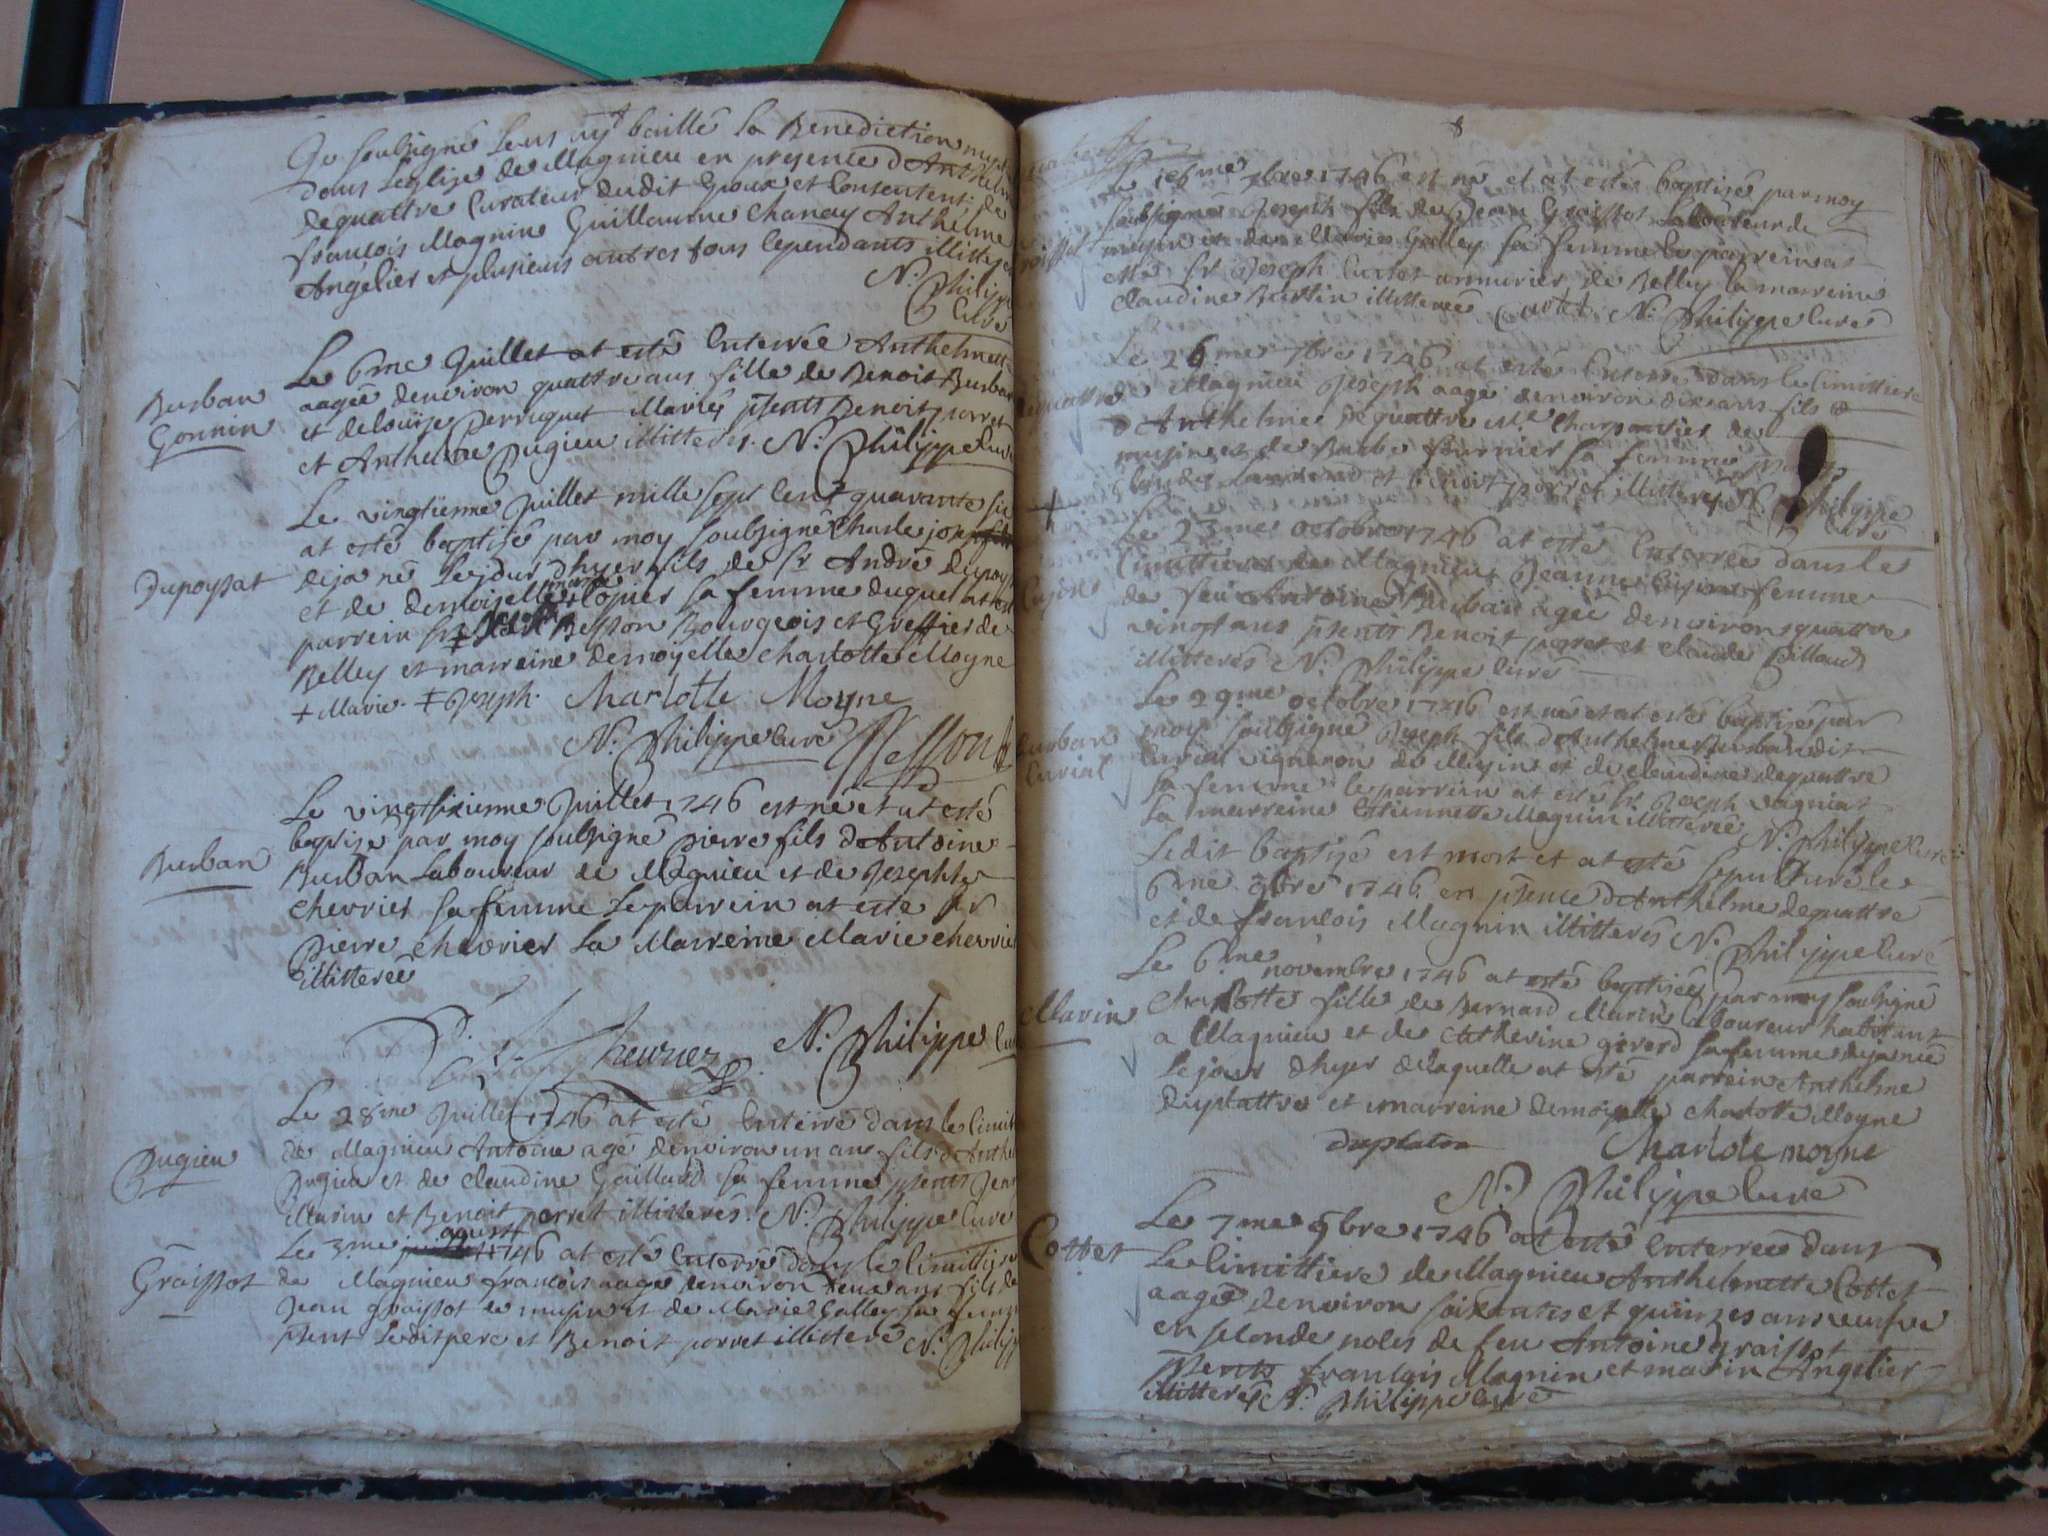 soubsigné leurs ay baillé la Benediction
dans leglise de Magnieu en presence d'Anthelme
dequattre Curateur dudit Groux et Consentent de
françois Magnin Guillaume Chanay Anthelme
Angelier et plusieurs autres tous Cependants illitt
N. Philippe
Curé
Burban
Gonnin
Le 6me Juillet at esté Enterrée Anthelmett
aagée denviron quattre ans fille de Benoit Burban
et de louise Perriquet Mariés psents Benoit porret
et Anthelme Pugieu illitterés. N. Philippe Curé
Dupoysat
Le vingtienne Juillet mille sept Cent quarante six
at esté baptisé par moy soubsigné Charle joseph
deja né le jour dhyer fils de Sr André Dupoys
et de demoiselle Coquet sa femme duquel at esté
parrein Sr Besson Bourgeois et Greffier de
Belley et marreine demoyelle Charlotte Moyne
+ Marie. ‡ Joseph. Charlotte Moyne
N. Philippe Curé Besson
Burban
Le vingtsixienne Juillet 1746 est né et at esté
baptisé par moy soubsigné pierre fils dAntoine
Burban Laboureur de Magnieu et de Josephte
chevrier sa femme Le parrein at esté sr
pierre chevrier La Marreine Marie chevrier
illitterée
P. Chevrier N. Philippe Cu
Pugieu
Le 28me Juillet 1746 at esté Enterré dans le Cimit
de Magnieu Antoine agé denviron un ans fils d'Anthel
Pugieu et de Claudine Gaillard sa femme psents Jean
Marin et Benoit porret illitterés. N. Philippe Curé
Graissot
aoust
Le 3me 1746 at esté Enterré dans le Cimittiere
de Magnieu francois aagé denviron deux ans fils de
Jean Graissot de musin et de Marie Galley sa femme
psent Ledit pere et Benoit porret illitteré N. Philipp
8
16me 7bre 1746 est né et at esté baptisé par moy
soubsigné Joseph fils de Jean Graissot Laboureur de
musin et de Marie Galley sa femme le parrein at
esté sr Joseph Curtet armurier de Belley la marreine
Claudine Burtin illitterée Curtet N. Philippe Curé
dequattre
Le 26me 7bre 1746 at esté Enterré dans le Cimittiere
de Magnieu Joseph aagé denviron dix ans fils
d'Anthelme dequattre Mr Charpantier de
musin et de Barbe fournier sa femme
Claude et benoit porret illitterés N. Philippe
Curé
Cusin
Le 23me octobre 1746 at esté Enterrée dans le
Cimittiere de Magnieu Jeanne Cusin femme
de feu Antoine agée denviron quattre
vingt ans psents Benoit porret et Claude Paillaud
illitterés N. Philippe Curé
Burban
Curial
Le 29me octobre 1746 est né et at esté baptisé par
moy soubsigné Joseph fils d'Anthelme Burban dit
Curial vigneron de Musin et de Claudine dequattre
sa femme le parrein at esté Sr Joseph vagniat
La marreine Estiennette Magnin illitterée N. Philippe Curé
Ledit baptisé est mort et at esté sepulturé le
6me 9bre 1746 en psence dAnthelme dequattre
et de françois Magnin illitterés N. Philippe Curé
Marin
Le 6me novembre 1746 at esté baptisée par moy soubsigné
Charlotte fille de Bernard Marin Laboureur habitant
a Magnieu et de Catherine girerd sa femme deja née
le jour dhyer de laquelle at esté parrein Anthelme
Duplattre et marreine demoiselle charlotte Moyne
duplatre Charlote moyne
N. Philippe Curé
Cottet
Le 7me 9bre 1746 at esté Enterrée dans
Le Cimittiere de Magnieu Anthelmette Cottet
aagée denviron soixantes et quinzes ans veufve
en seconde noles de feu Antoine graissot
psents francois Magnin et marin Angelier
illitterés N. Philippe Curé